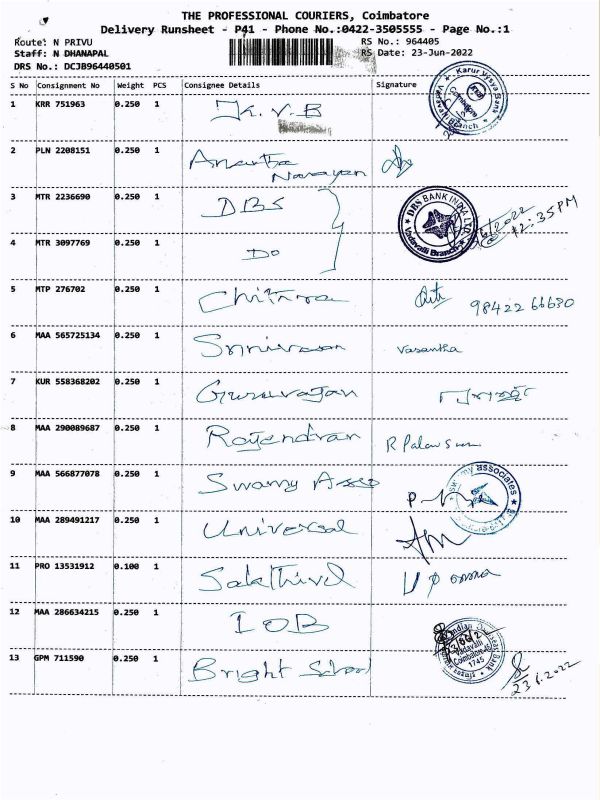 THE PROFESSIONAL COURIERS, Coimbatore
Delivery Runsheet - P41 - Phone No.:0422-3505555 - Page No.:1
Route: N PRIVU RS No.: 964405
Staff: N DHANAPAL RS Date: 23-Jun-2022
DRS No.: DCJB96440501
S No Consignment No Weight PCS Consignee Details Signature
1 KRR 751963 0.250 1 K.V.B Karur Vysya Bank Coimbatore Vadavalli Branch
2 PLN 2208151 0.250 1 Anantha Narayan
3 MTR 2236690 0.250 1 DBS DBS BANK INDIA LTD Vadavalli Branch
4 MTR 3097769 0.250 1 Do 6/2022 @ 12:35PM
5 MTP 276702 0.250 1 Chitra 98422 66630
6 MAA 565725134 0.250 1 Srinivasan Vasantha
7 KUR 558368202 0.250 1 Gururajan
8 MAA 290089687 0.250 1 Rajendran
9 MAA 566877078 0.250 1 Swamy Asso associates
10 MAA 289491217 0.250 1 Universal
11 PRO 13531912 0.100 1 Sakthivel
12 MAA 286634215 0.250 1 IOB Indian Overseas Bank Vadavalli Coimbatore-41 1745
13 GPM 711590 0.250 1 Bright School 23.6.2022